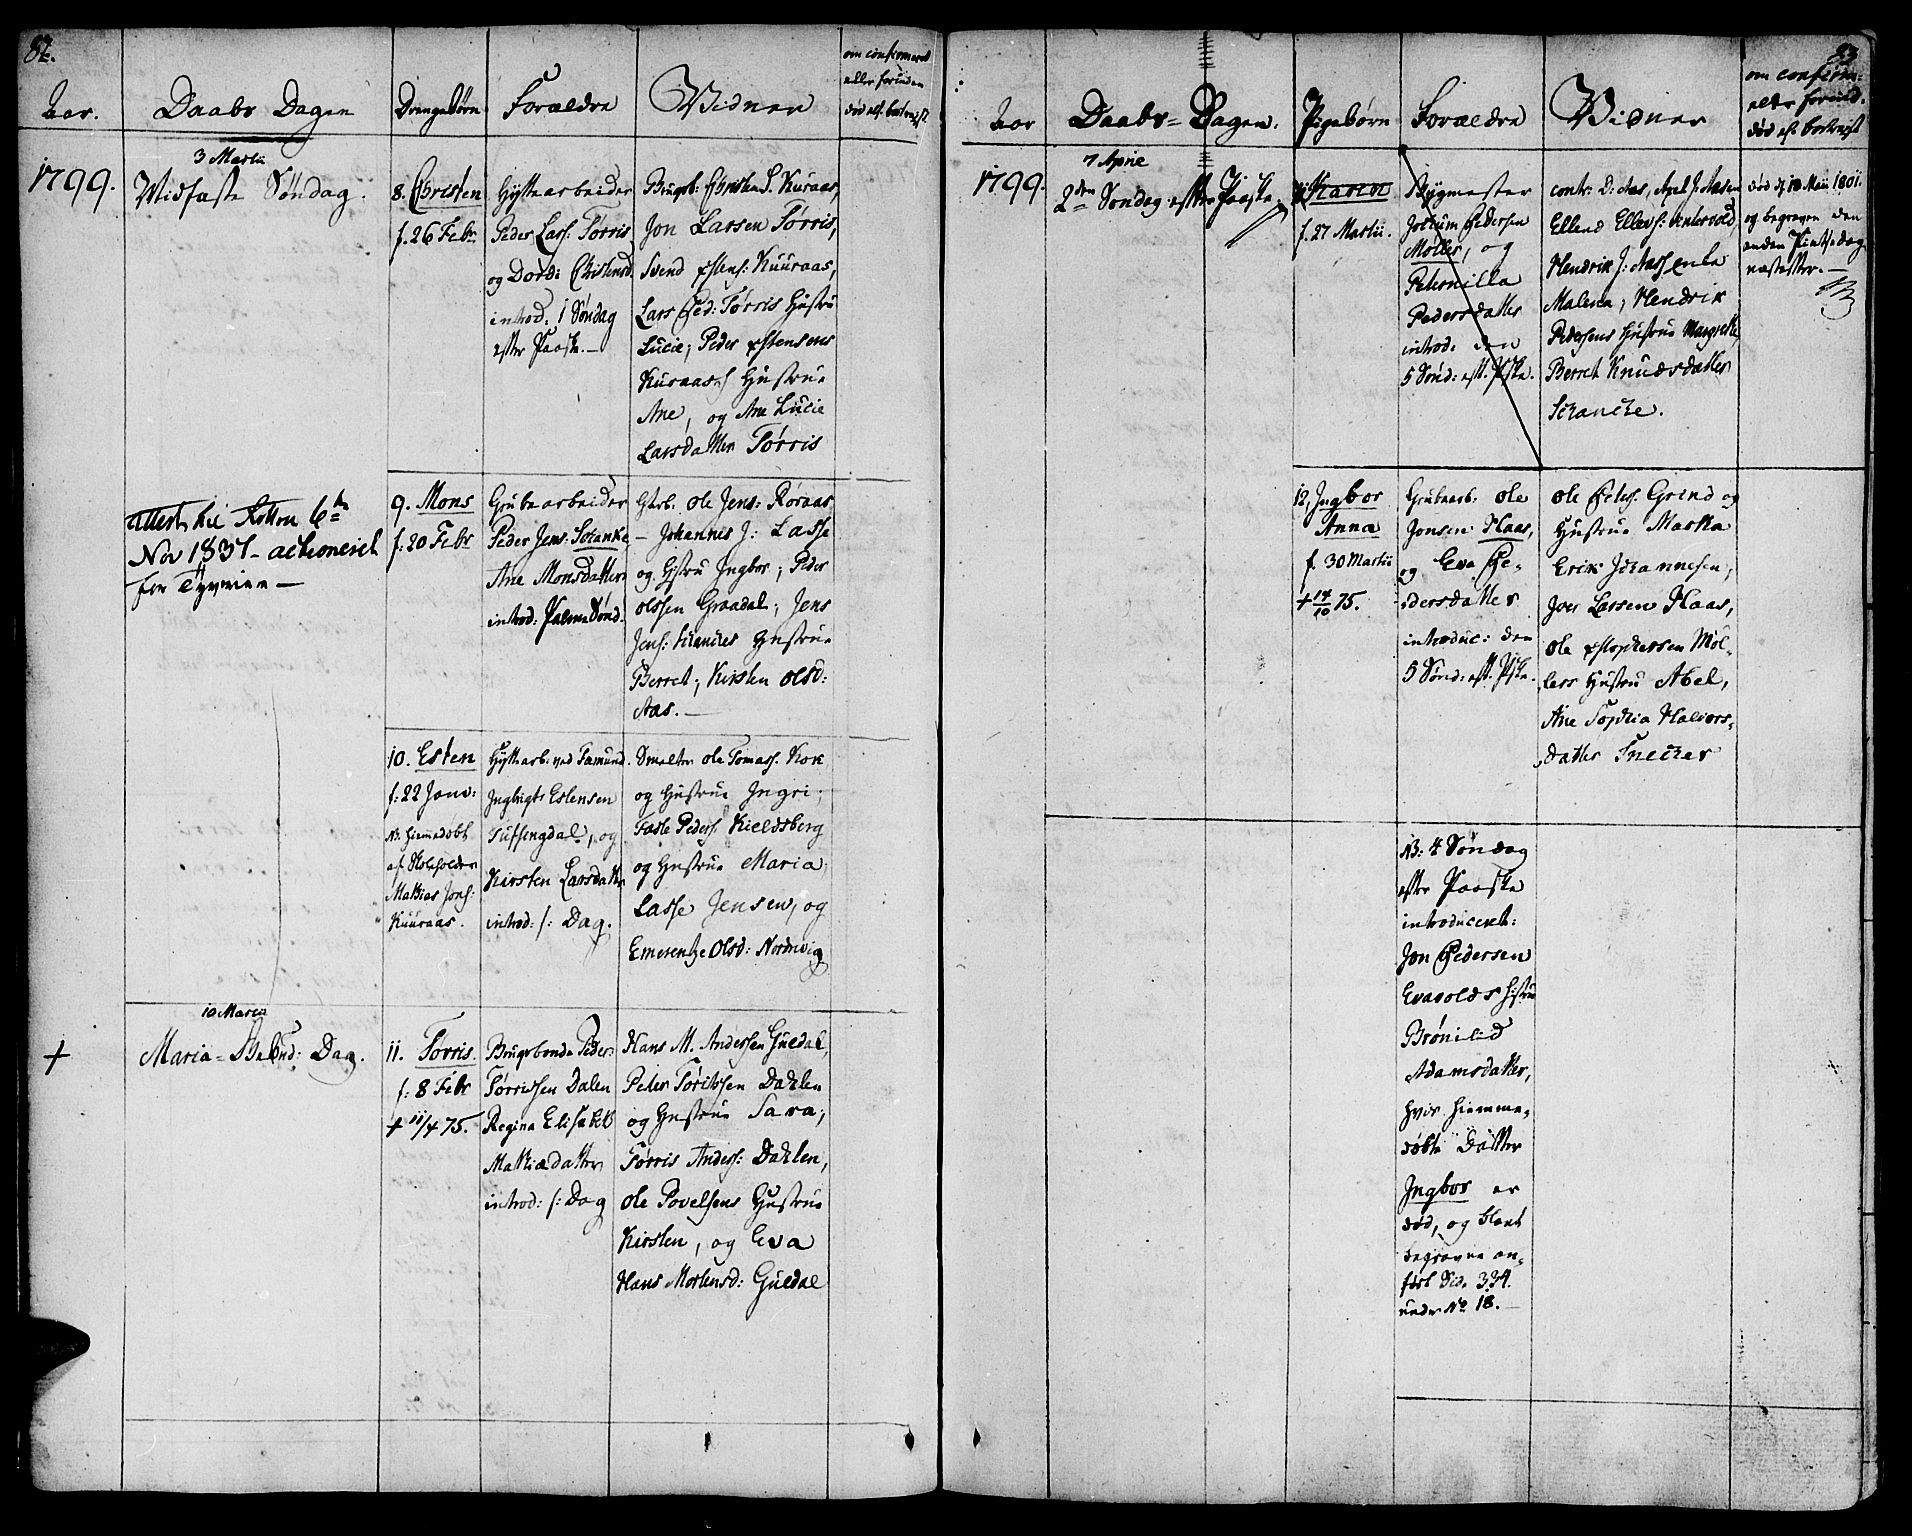 82.
Aar.
Daabs Dagen
Drengebørn
Forældre
Vidner
om confirmeret
eller forinden
død
1799.
3 Martii
Midfaste Søndag.
8. Christen
f. 26 Febr
Hyttearbeider
Peder Lars: Tørris
og Dord: Christensd.
introd. 1 Søndag
efter Paaske.—
Christen S. Kuraas,
Jon Larsen Tørris,
Svend Estens: Kuuraas,
Lars Ped: Tørris Hustru
Lucie; Peder Estensens
Kuraases Hustrue
Ane, og Ane Lucie
Larsdatter Tørris
Attest til Retten 6te
Nov 1837 - actioneret
for Tyverie —
9. Mons
f: 20 Febr
Grubearbeider
Peder Jens: Schanke
Ane Monsdatter
introd: Palme Sønd.
Ole Jens: Røraas
- Johannes J: Lasse
og Hustru Ingbor; Peder
Olssen Graadal; Jens
Jens: Schanckes Hustrue
Berret; Kirsten Olsd:
Aas.—
10. Esten
f: 22 Janv:
NB. hiemedøbt
af Skoleholder
Mathias Jons:
Kuuraas.
Hyttearb: ved Famund
Ingbrigt Estensen
Tufsengdal, og
Kirsten Larsdatter
introd: s: Dag.
Smelter Ole Tomass. Kok
og Hustrue Ingri;
Taale Peders. Kieldsberg
og Hustrue Maria
Lasse Jensen, og
Emerentze Olsd: Nordvig
+
10 Martii
Maria Bebud: Dag.
11. Torris.
f: 8 Febr
+ 11/4 75.
Brugsbonde Peder
Tørrissen Dalen
Regina Elisabet
Mathiædatter
introd: s: Dag
Hans M. Andersen Guldal,
Peter Törrissen Dahlen
og Hustrue Sara;
Tørris Anders: Dahlen,
Ole Povelsens Hustrue
Kirsten, og Eva
Hans Mortensd: Guldal
83
Aar
Daabs-Dagen.
Pigebørn
Forældre
Vidner
om confirm:
eller forind.
død
1799.
7 April
2den Søndag efter Paaske.
Karen
f. 27 Martii.
Bygmester
Jochum Pedersen
Møller, og
Peternilla
Pedersdatter
introd: den
5 Sønd: eft. Pske.
contr: D: Aas, Axel J: Aasen
Ellend Ellefs:
Hendrik J: Aas's enke
Malena, Hendrik
Pedersens Hustrue Margrethe
Berret Knudsdatter
Schancke.
død d: 18 Maii 1801.
og begraven den
anden Pintsedag
næstefter.—
12. Ingbor
Anna
f. 30 Martii
+ 14/10 75.
Grubearb. Ole
Jonsen Haas,
og Eva Pe-
dersdatter
introduc: den
5 Sønd: eft. Pske.
Ole Peters: Grind og
Hustrue Marta
Erik Johannesen,
Joer Larsen Haas,
Ole Møl-
lers Hustru Abel,
Ane Sophia Halvors-
datter Snecker
NB: 4 Søndag
efter Paaske
introduceret:
Jon Pedersen
Evavolds Hustrue
Brønild
Adamsdatter,
hvis hiemme-
døbte Datter
Ingbor er
død, og blant
begravne an-
ført Sid. 334.
under No 18.—